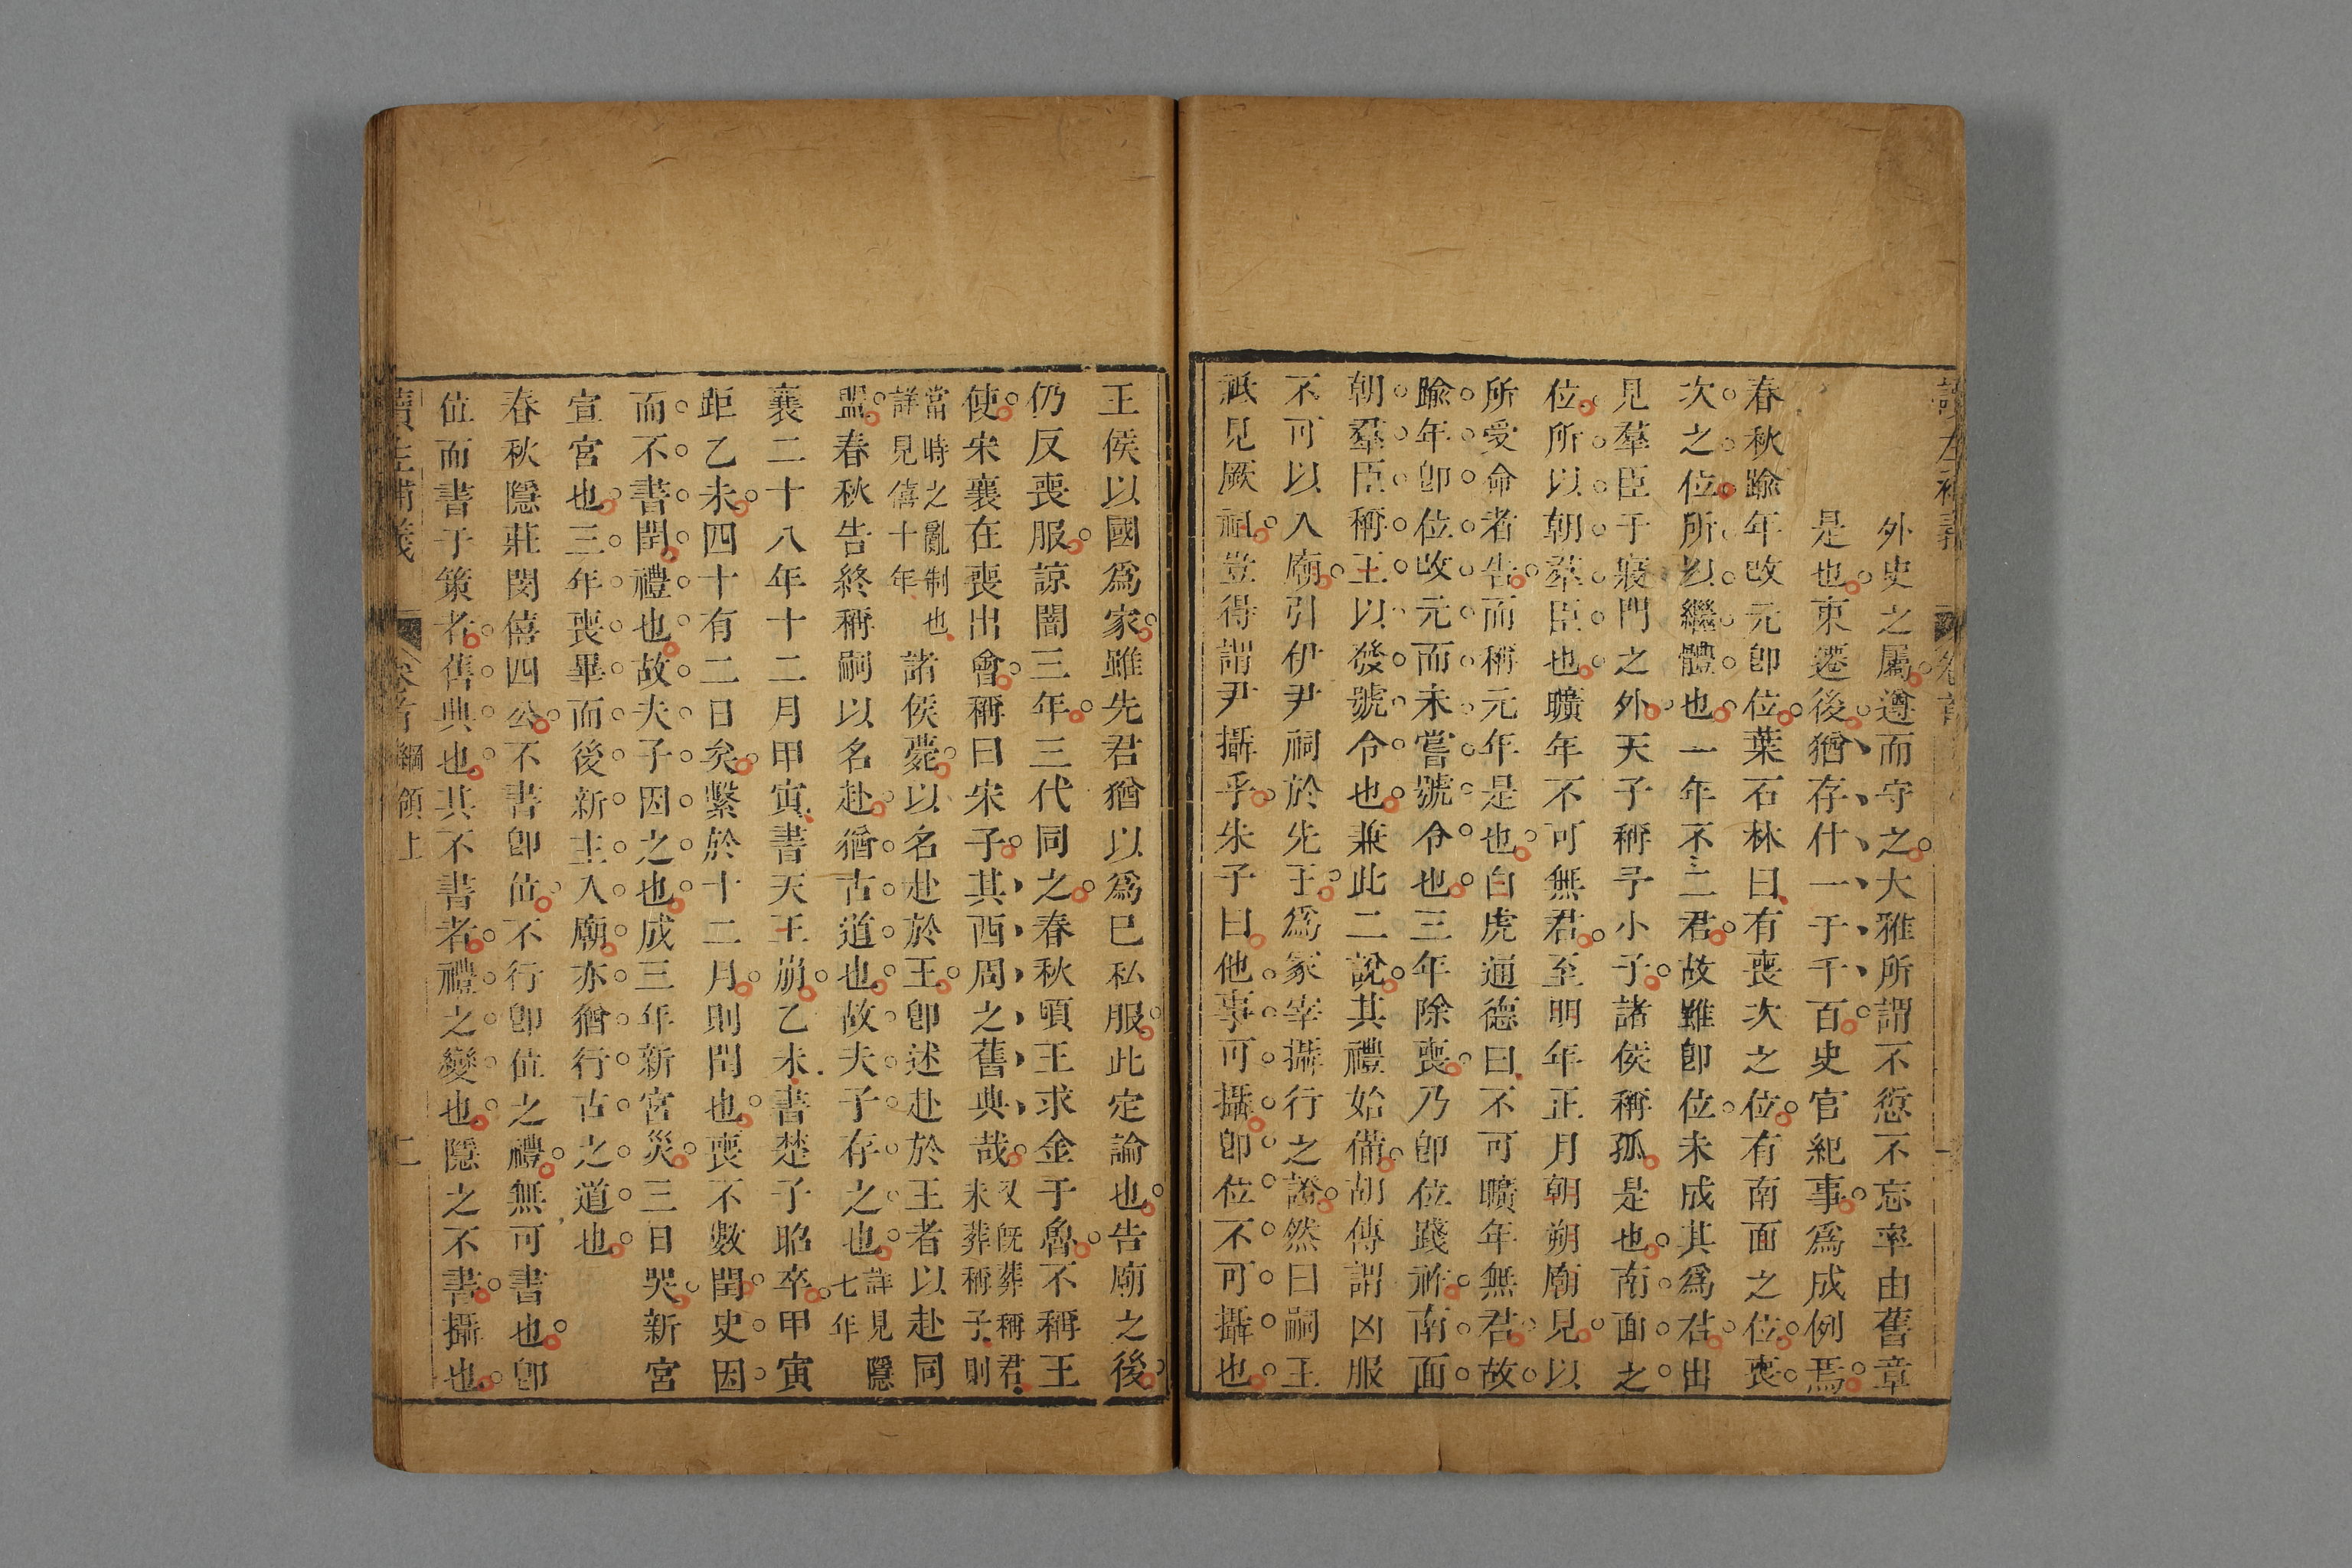 讀左補義
卷首
外史之屬遵而守之大雅所謂不愆不忘率由舊章
是也東遷後猶存什一于千百史官紀事爲成例焉
春秋踰年改元卽位葉石林曰有喪次之位有南面之位喪
次之位所以繼體也一年不二君故雖卽位未成其爲君出
見羣臣于寢門之外天子稱予小子諸侯稱孤是也南面之
位所以朝羣臣也曠年不可無君至明年正月朝朔廟見以
所受命者告而稱元年是也白虎通德曰不可曠年無君故
踰年卽位改元而未嘗號令也三年除喪乃卽位踐祚南面
朝羣臣稱王以發號令也兼此二說其禮始備胡傳謂凶服
不可以入廟引伊尹祠於先王爲冢宰攝行之證然曰嗣王
祇見厥祖豈得謂尹攝乎朱子曰他事可攝卽位不可攝也
王侯以國爲家雖先君猶以爲已私服此定論也告廟之後
仍反喪服諒闇三年三代同之春秋頃王求金于魯不稱王
使宋襄在喪出會稱曰宋子其西周之舊典哉又旣葬稱君未葬稱子則
當時之亂制也詳見僖十年諸侯薨以名赴於王卽述赴於王者以赴同
盟春秋告終稱嗣以名赴猶古道也故夫子存之也詳見隱七年
襄二十八年十二月甲寅書天王崩乙未書楚子昭卒甲寅
距乙未四十有二日矣繫於十二月則閏也喪不數閏史因
而不書閏禮也故夫子因之也成三年新宮災三日哭新宮
宣宮也三年喪畢而後新主入廟亦猶行古之道也
春秋隱莊閔僖四公不書卽位不行卽位之禮無可書也卽
位而書于策者舊典也其不書者禮之變也隱之不書攝也
讀左補義
卷首 綱領上
二